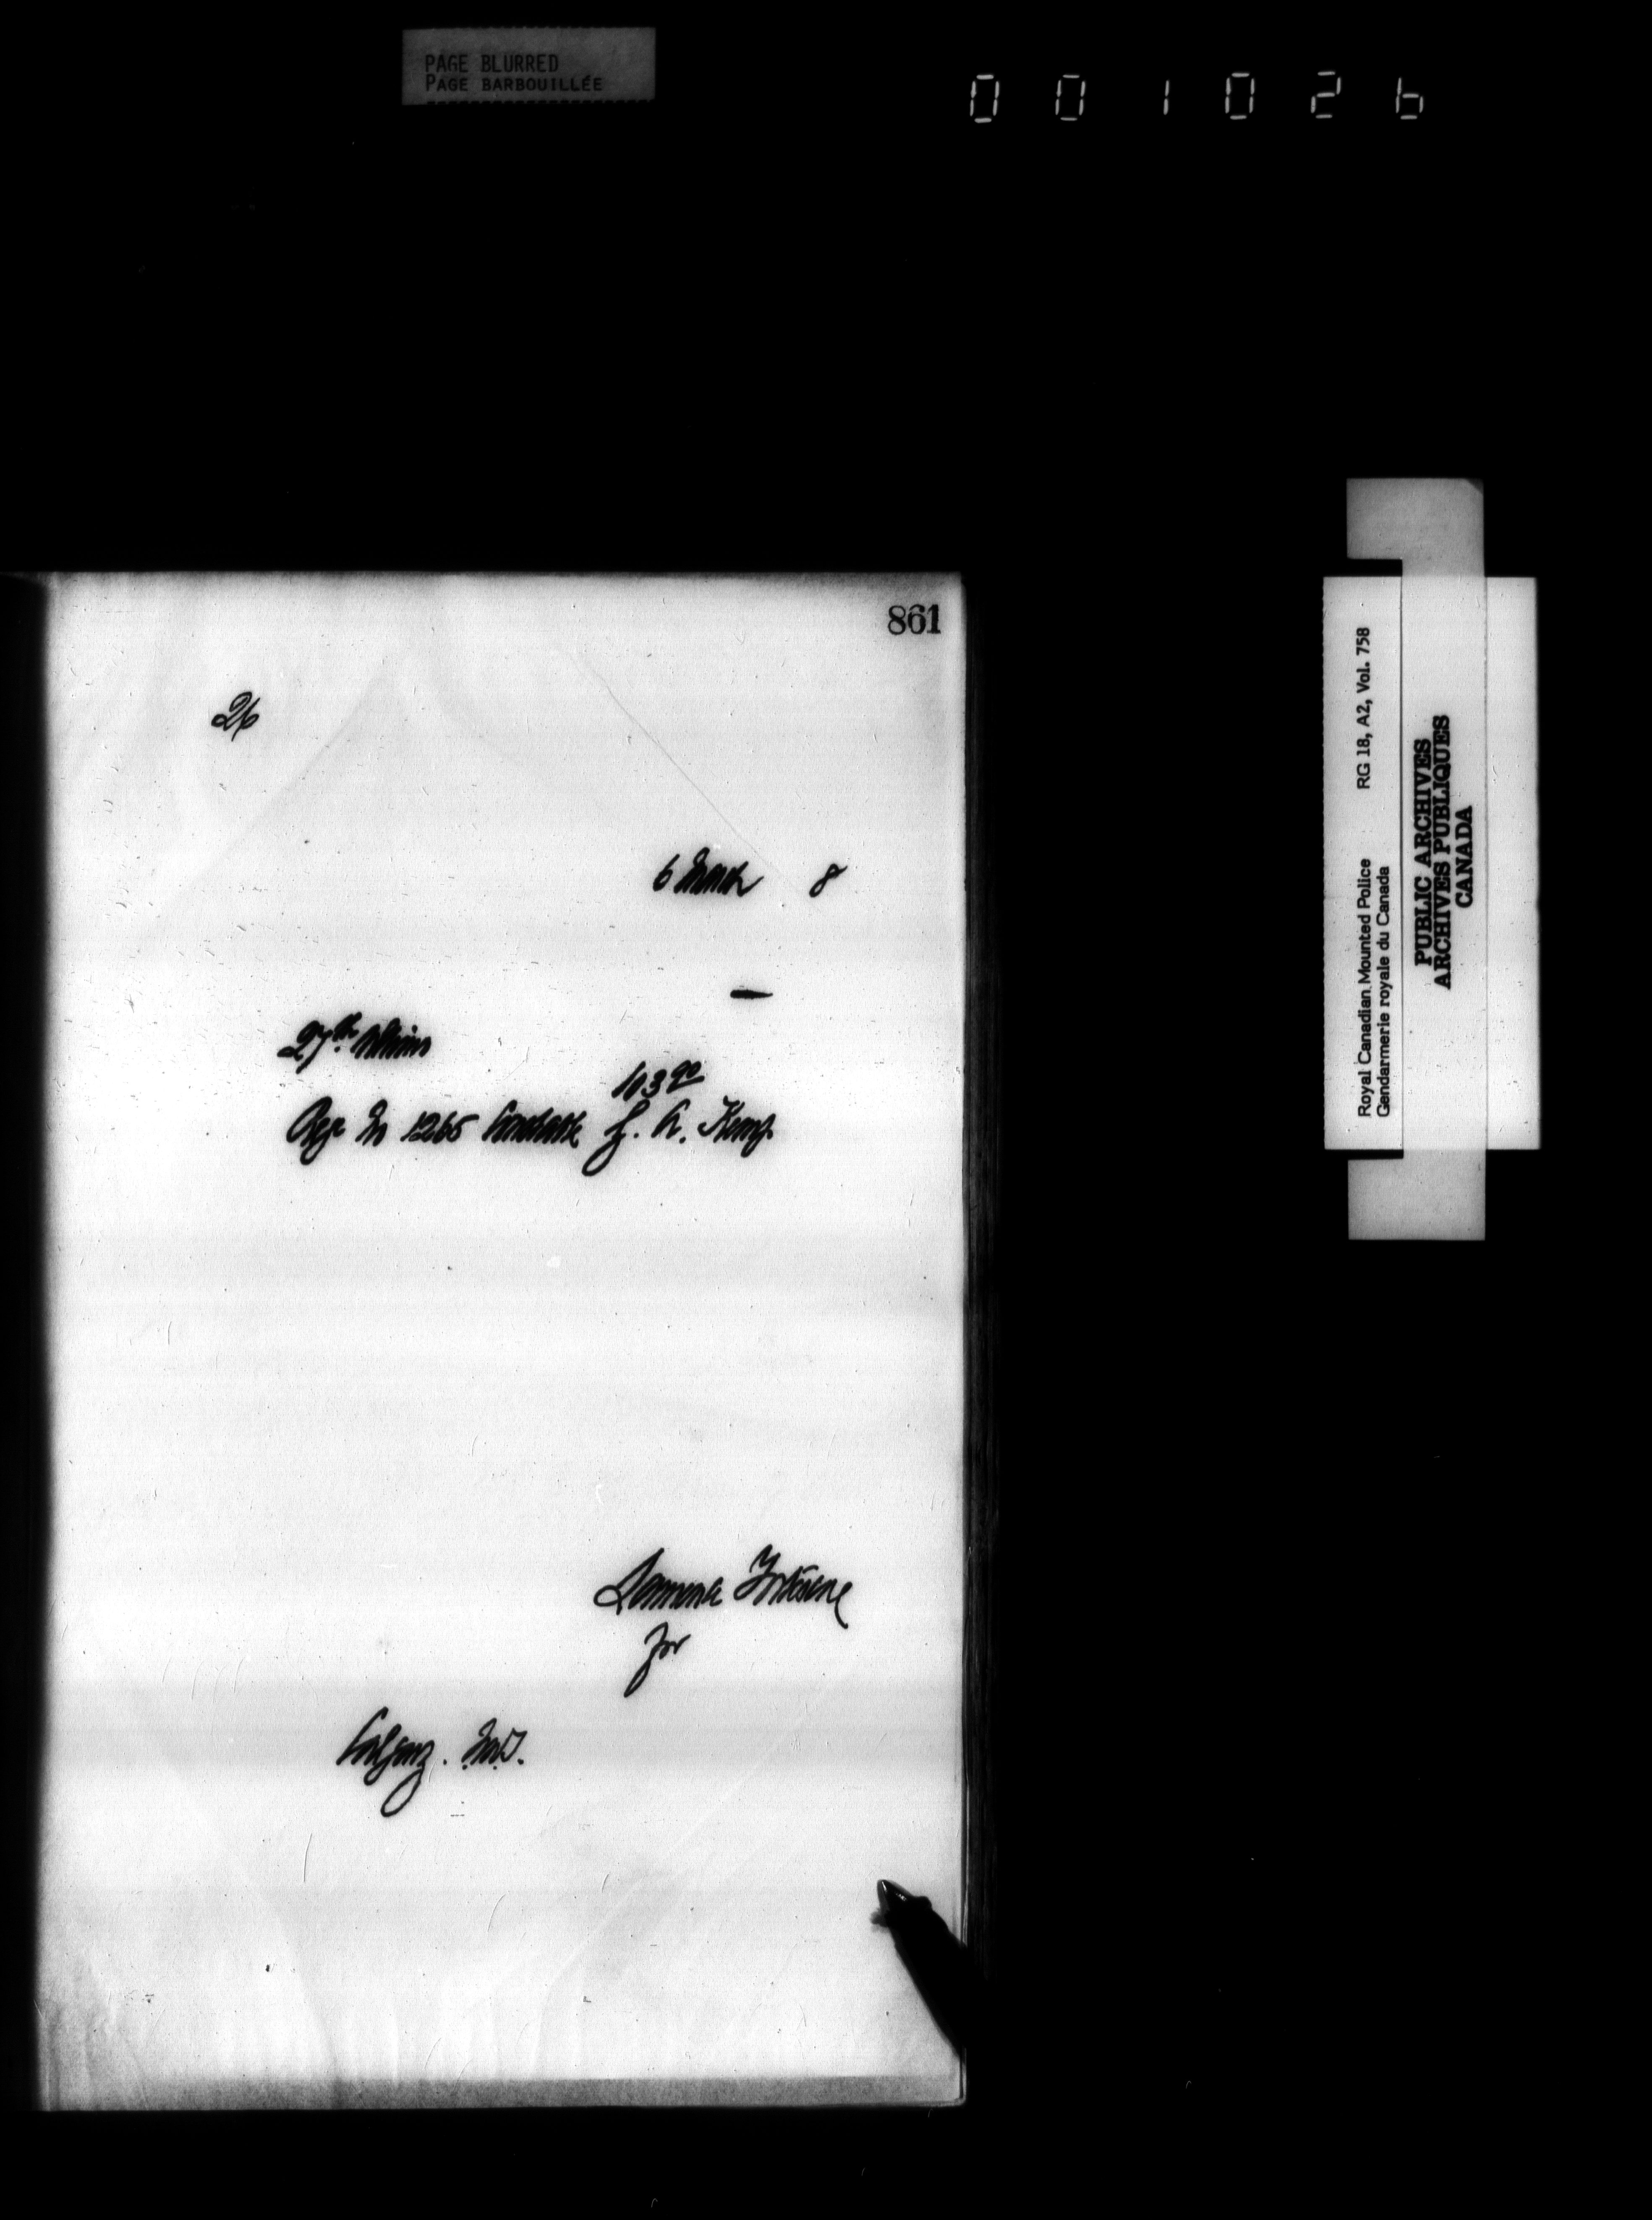 PAGE BLURRED
PAGE BARBOUILLÉE
001026
861
26
6 March 8
27th Ultimo
103 90
Reg. No 1265 Constable J. A. Kemp
Fortescue
for
Calgary. N.W.T.
Royal Canadian Mounted Police RG 18, A2, Vol. 758
Gendarmerie royale du Canada
PUBLIC ARCHIVES
ARCHIVES PUBLIQUES
CANADA